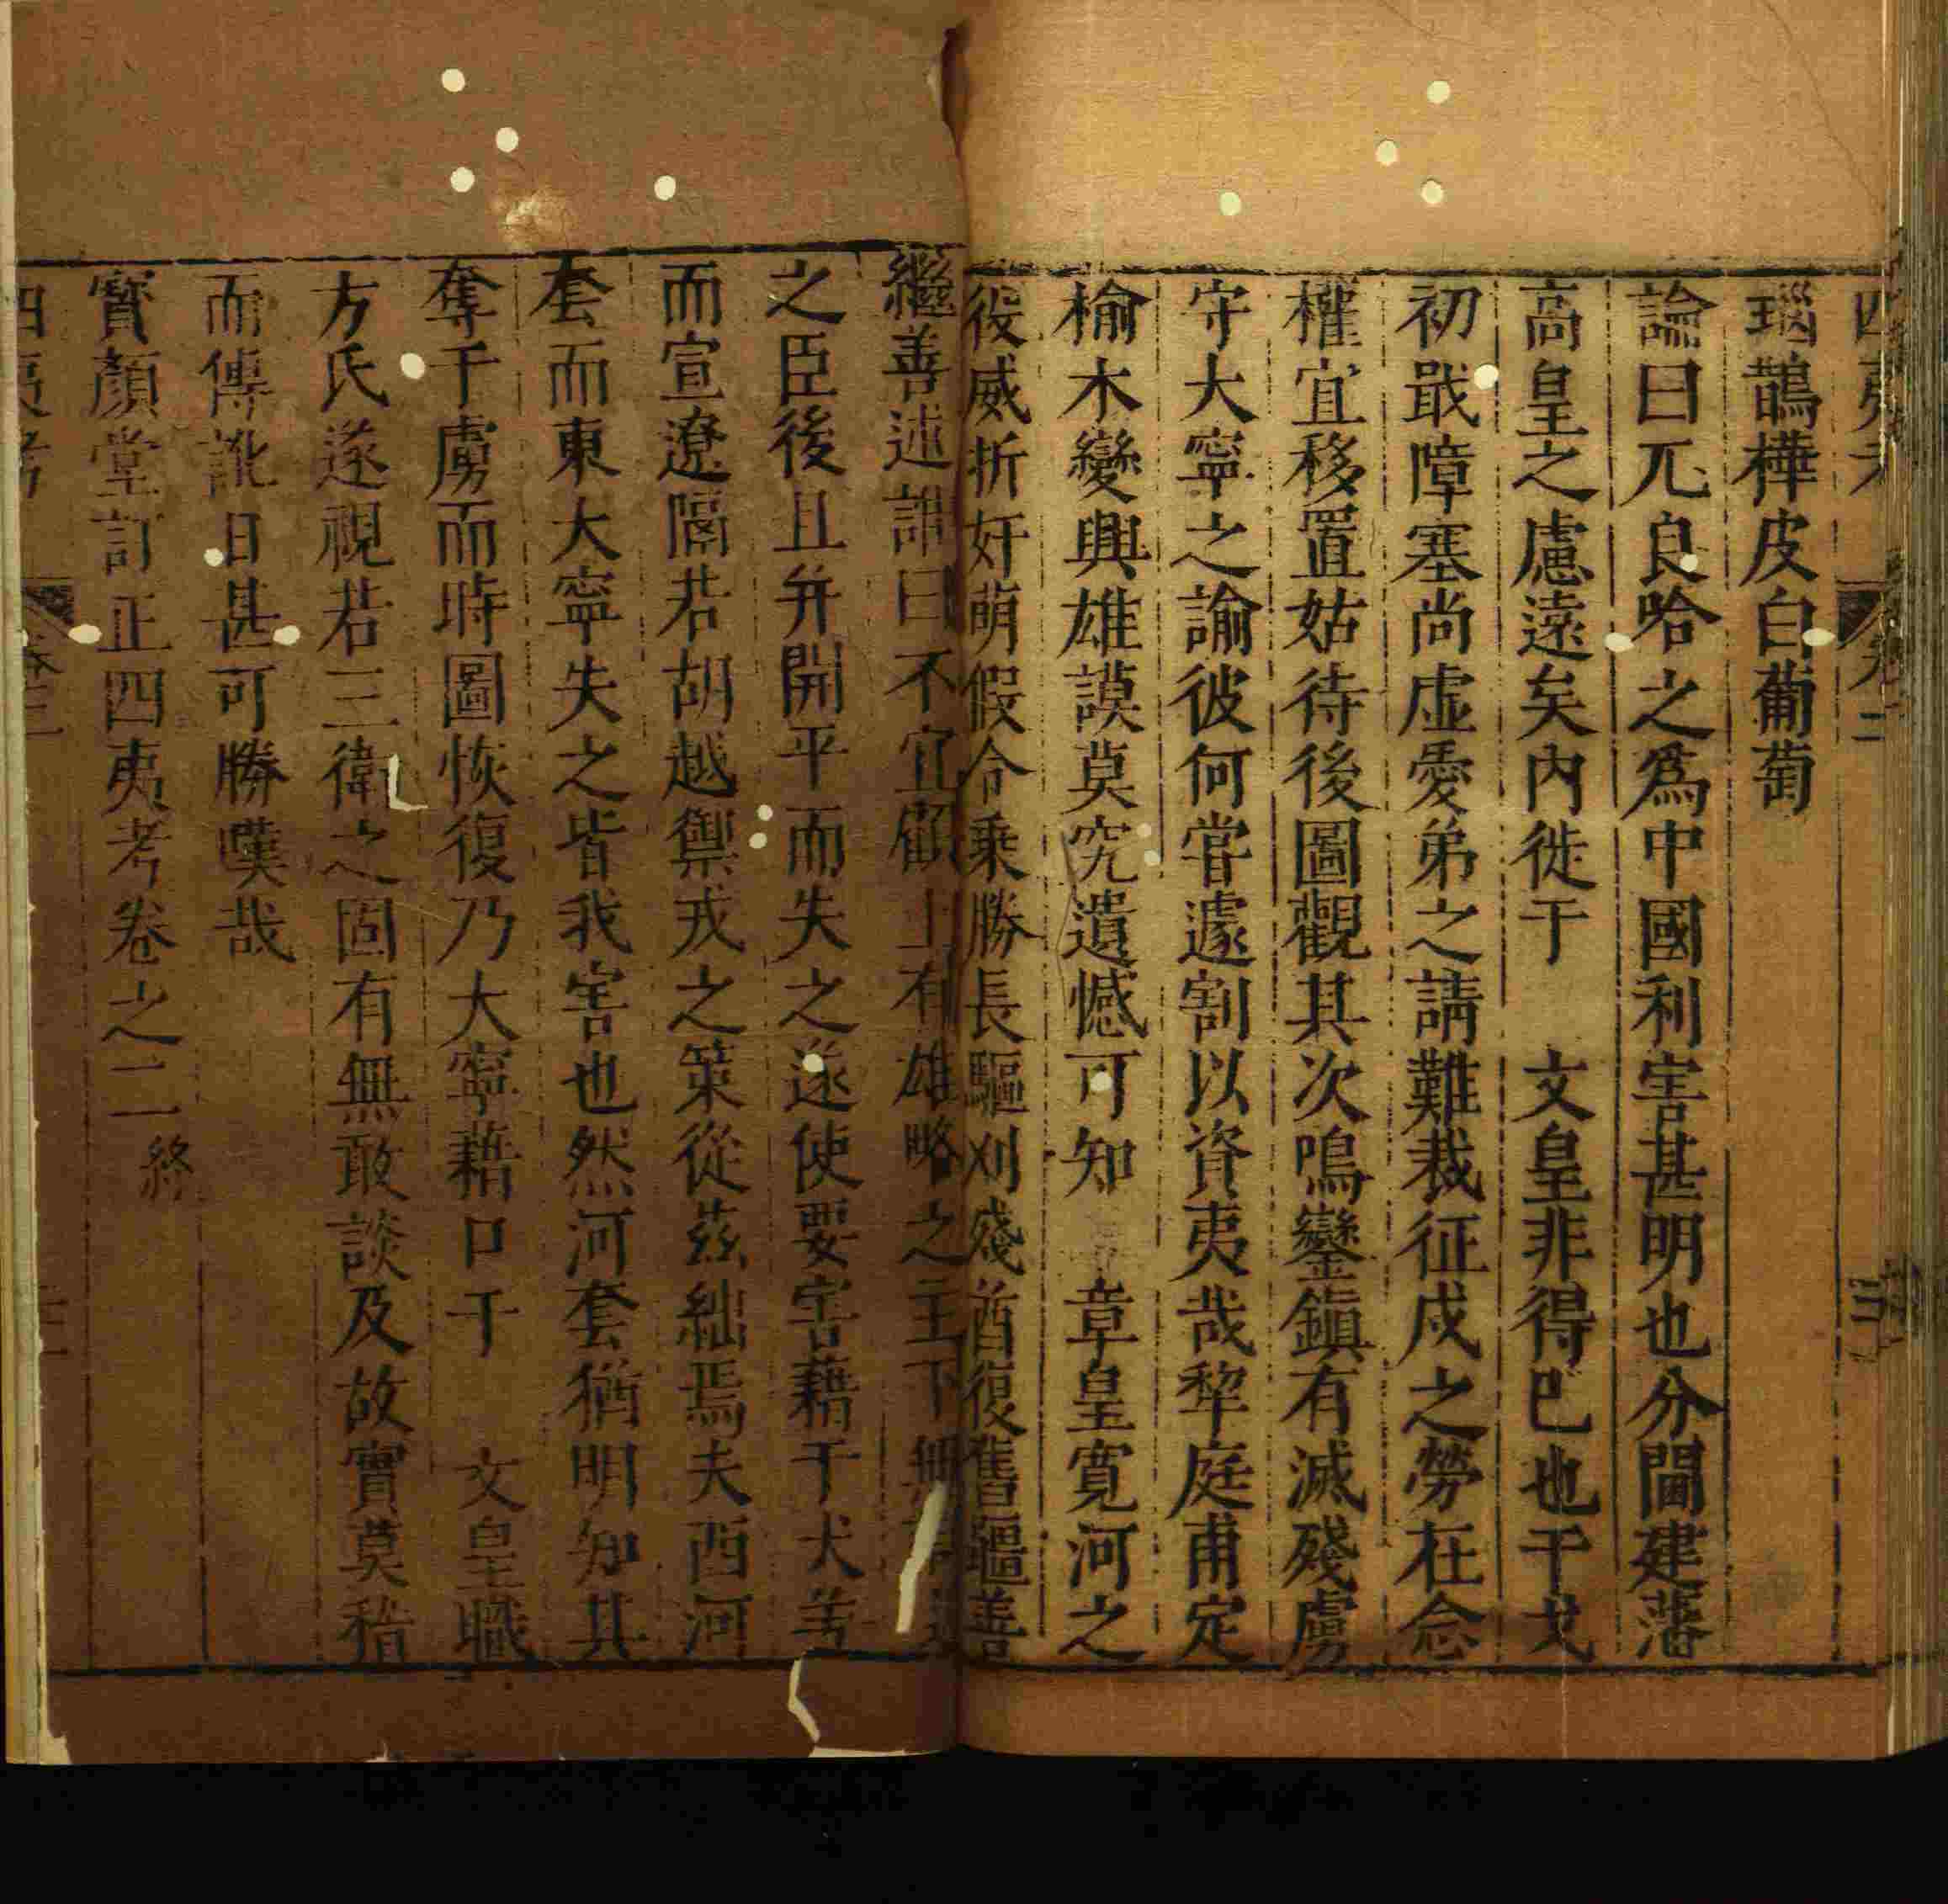 瑙鵲樺皮白葡萄
論曰兀良哈之爲中國利害甚明也分閫建藩
高皇之慮遠矣內徙于　文皇非得已也干戈
初戢障塞尚虛愛弟之請難裁征戍之勞在念
權宜移置姑待後圖觀其次鳴鑾鎮有滅殘虜
守大寧之諭彼何嘗遽割以資夷哉犂庭甫定
榆木變興雄謨莫究遺憾可知　章皇寬河之
役威折奸萌假令乘勝長驅刈殘酋復舊疆善
繼善述誰曰不宜顧上有雄略之主下無
之臣後且弁開平而失之遂使要害藉于犬羊
而宣遼隔若胡越禦戎之策從茲絀焉夫西河
套而東大寧失之皆我害也然河套猶明知其
奪于虜而時圖恢復乃大寧藉口于　文皇職
方氏遂視若三衛之固有無敢談及故實莫稽
而傳訛日甚可勝嘆哉
寶顏堂訂正四夷考卷之二終
四夷考　卷二